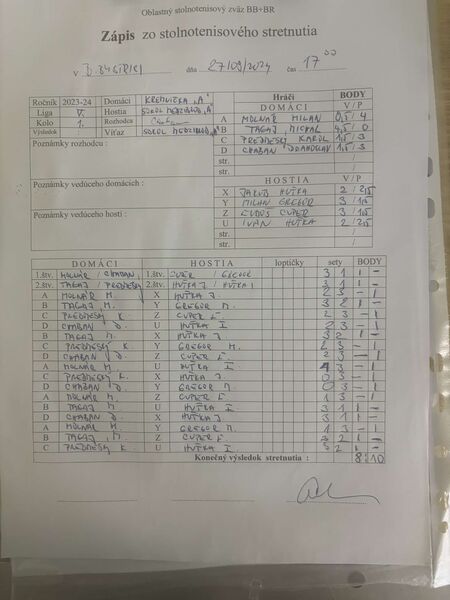 Oblastný stolnotenisový zväz BB+BR
Zápis zo stolnotenisového stretnutia
v B. BYSTRICI dňa 27/09/2024 čas 17⁰⁰
Ročník 2023-24 Domáci KREMNIČKA „A"
Hráči BODY
Liga V. Hostia SOKOL MEDZIBROD „A"
DOMÁCI V/P
Kolo 1. Rozhodca
A MOLNÁR MILAN 0,5/4
Výsledok Víťaz SOKOL MEDZIBROD „A"
B TAGAJ MICHAL 4,5/0
Poznámky rozhodcu :
C PREDNESKÝ KAROL 1,5/3
D CHABAN DRAHOSLAV 1,5/3
str. /
str. /
HOSTIA V/P
Poznámky vedúceho domácich :
X JAKUB HUTKA 2/2,5
Y MILAN GREGOR 3/1,5
Poznámky vedúceho hostí :
Z ĽUBOŠ CUPER 3/1,5
U IVAN HUTKA 2/2,5
str. /
str. /
DOMÁCI HOSTIA loptičky sety BODY
1.štv. MOLNÁR / CHABAN 1.štv. CUPER / GREGOR 3 1 1 -
2.štv. TAGAJ / PREDNESKÝ 2.štv. HUTKA J / HUTKA I 3 1 1 -
A MOLNÁR M. X HUTKA J 2 3 - 1
B TAGAJ M. Y GREGOR M. 3 2 1 -
C PREDNESKÝ K. Z CUPER Ľ 2 3 - 1
D CHABAN D. U HUTKA I 2 3 - 1
B TAGAJ M. X HUTKA J. 3 2 1 -
C PREDNESKÝ K. Y GREGOR M. 2 3 - 1
D CHABAN D. Z CUPER Ľ 2 3 - 1
A MOLNÁR M U HUTKA I 3 - 1
C PREDNESKÝ K. X HUTKA J. 0 3 - 1
D CHABAN D. Y GREGOR M. 0 3 - 1
A MOLNÁR M. Z CUPER Ľ 1 3 - 1
B TAGAJ M. U HUTKA I 3 1 1 -
D CHABAN D X HUTKA J 3 1 1 -
A MOLNÁR M. Y GREGOR M. 1 3 - 1
B TAGAJ M. Z CUPER Ľ 3 2 1 -
C PREDNESKÝ K. U HUTKA I 3 2 1 -
Konečný výsledok stretnutia : 8:10